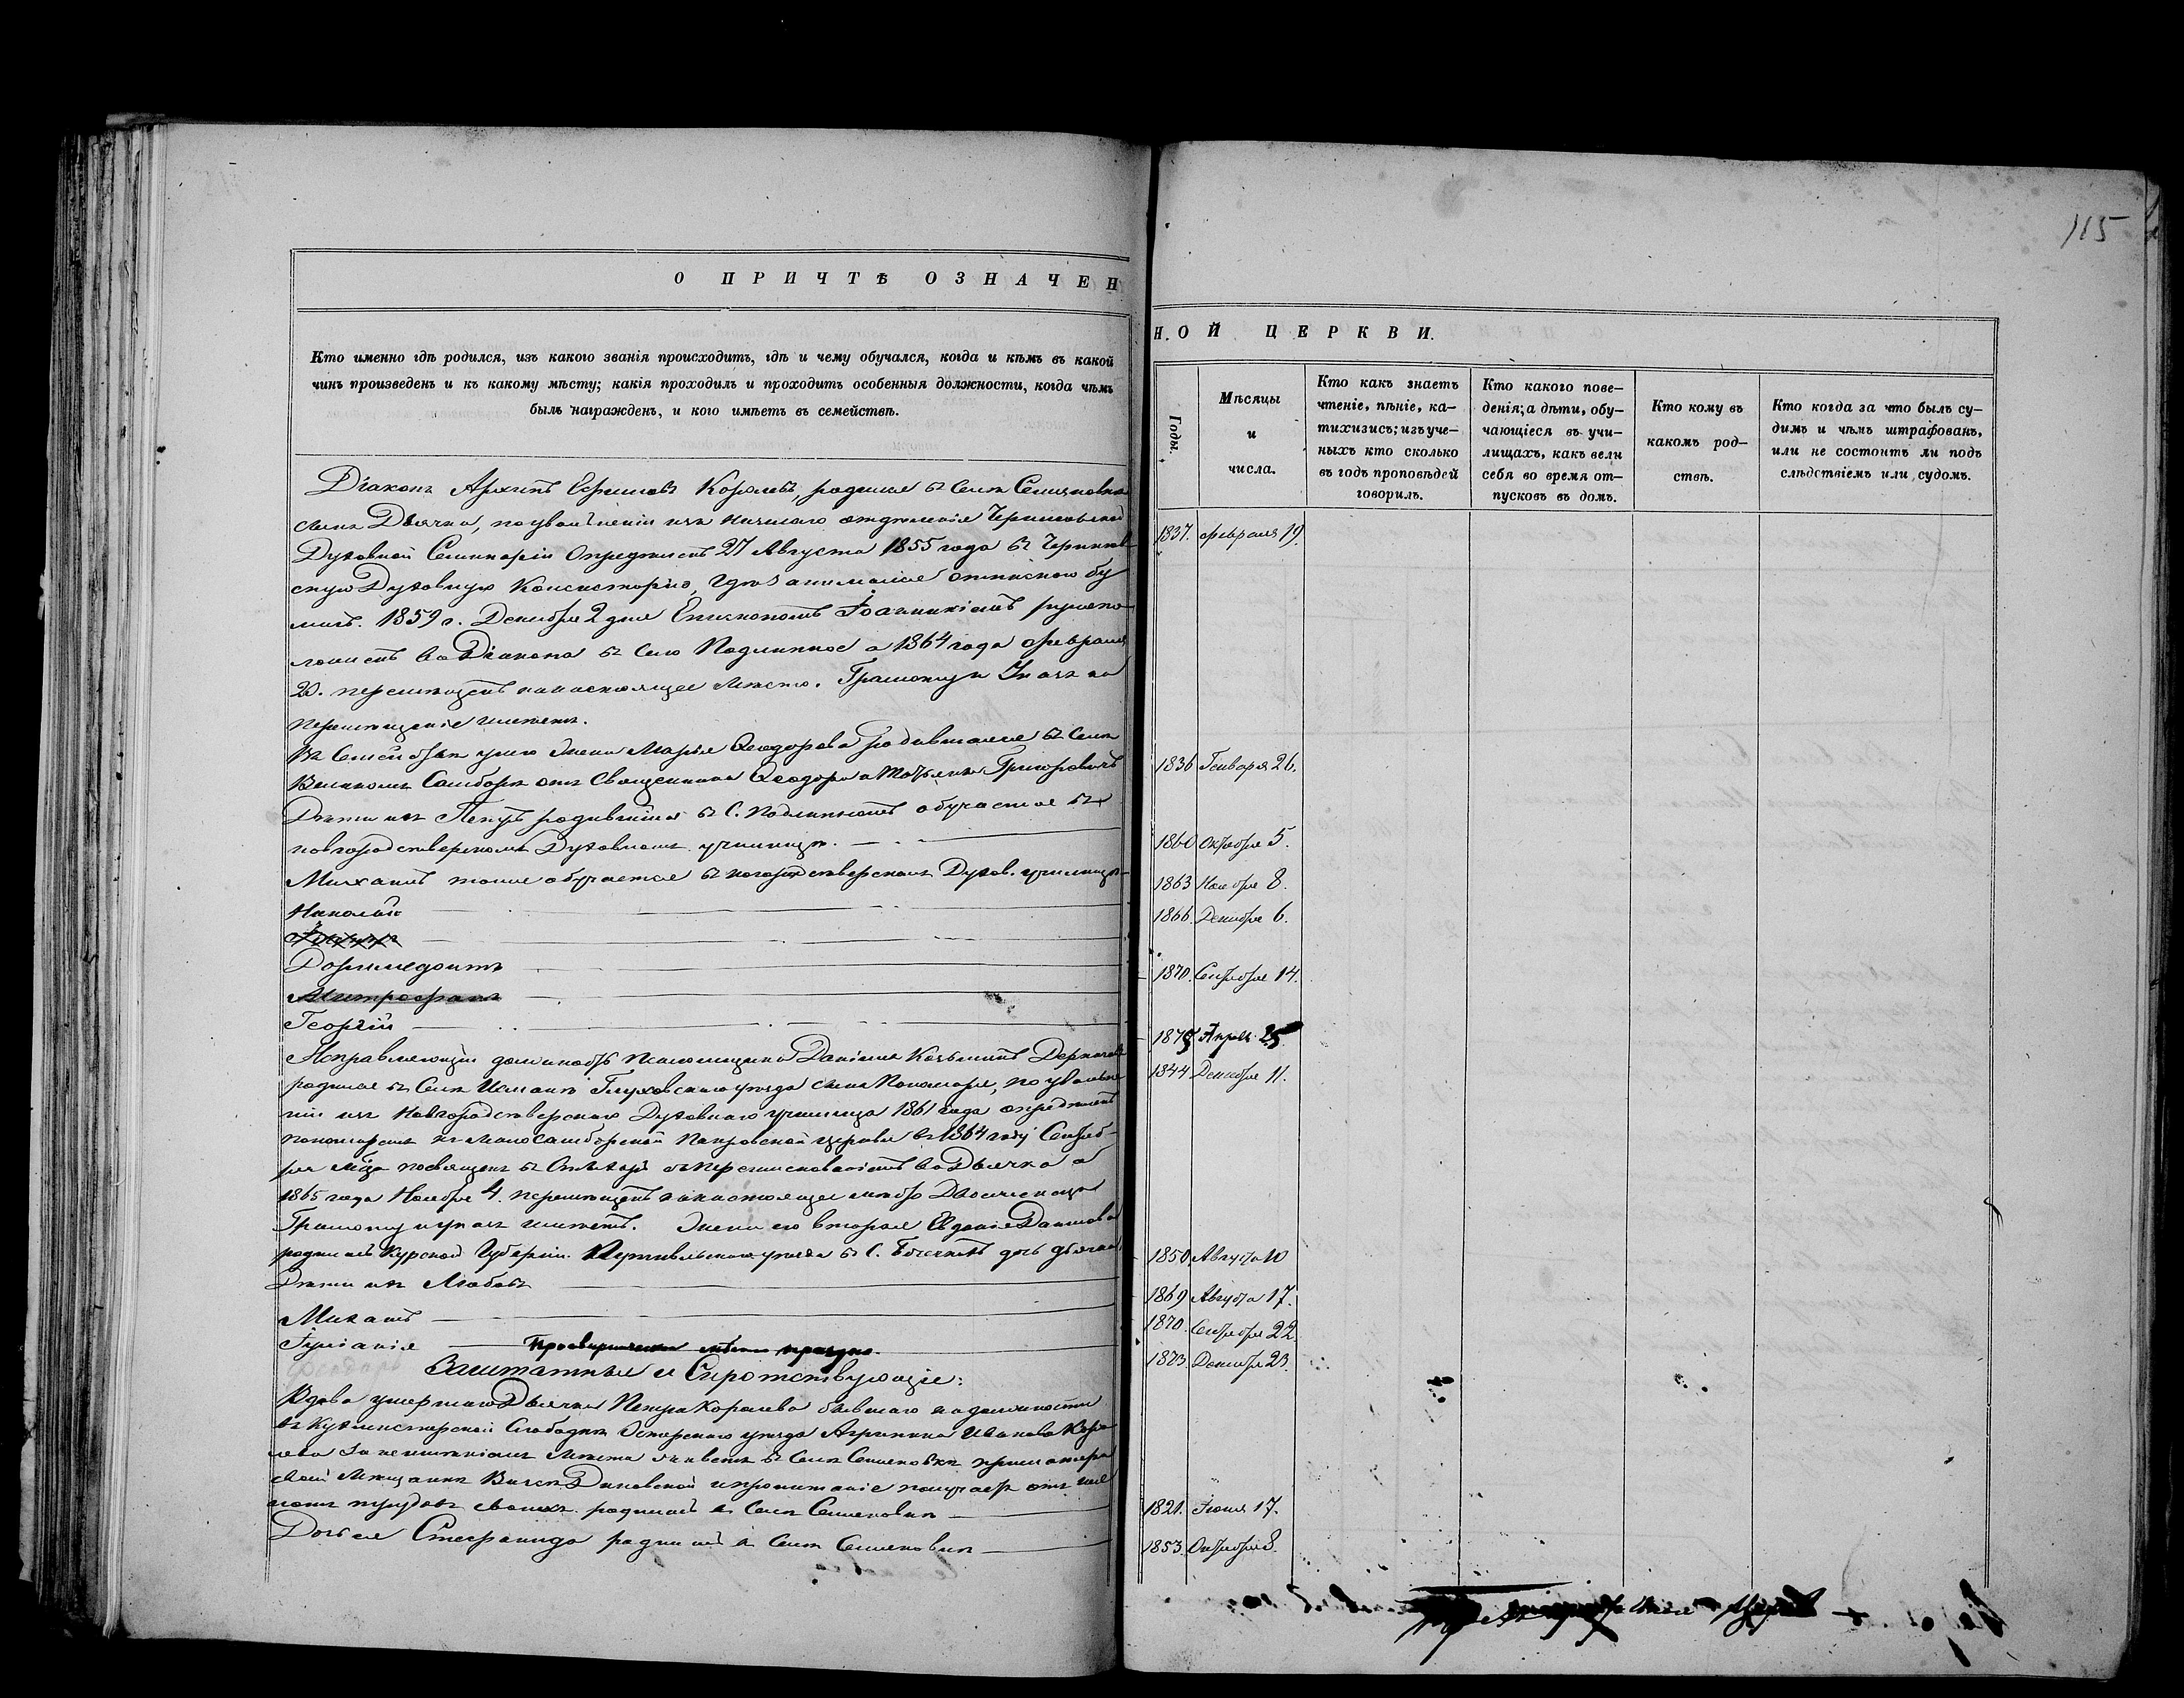 115
О ПРИЧТѢ ОЗНАЧЕН
Н.ОЙ ЦЕРКВИ.
Кто именно гдѣ родился, изъ какого званія происходитъ, гдѣ и чему обучался, когда и кѣмъ въ какой
чинъ произведенъ и къ какому мѣсту; какія проходилъ и проходитъ особенныя должности, когда чѣмъ
былъ награжденъ, и кого имѣетъ въ семействѣ.
Годы.
Мѣсяцы
и
числа.
Кто какъ знаетъ
чтеніе, пѣніе, ка-
тихизисъ; изъ уче-
ныхъ кто сколько
въ годъ проповѣдей
говорилъ.
Кто какого пове-
денія; а дѣти, обу-
чающіеся въ учи-
лищахъ, какъ вели
себя во время от-
пусковъ въ домъ.
Кто кому въ
какомъ род-
ствѣ.
Кто когда за что былъ су-
димъ и чѣмъ штрафованъ,
или не состоитъ ли подъ
слѣдствіемъ или судомъ.
Діаконъ Архипъ Ефимовъ Королевъ, родился въ Селѣ Семяновкѣ
сынъ Дьячка, по увольненіи изъ низшаго отдѣленія Черниговской
Духовной Семинаріи Опредѣленъ 27 Августа 1855 года въ Чернигов-
скую Духовную Консисторію, гдѣ занимался опискою бу
магъ. 1859 г. Декабря 2 дня Епископомъ Іоанникіемъ рукопо-
ложенъ во Діакона въ Село Подлипное а 1864 года февраля
20. перемѣщенъ на настоящее мѣсто. Грамоту и Указъ на
перемѣщеніе имѣетъ.
Въ Семействѣ у него жена Марья Ѳеодорова родившаяся въ Селѣ
Великомъ Самборѣ отъ Священника Ѳеодора и Татьяны Григоровичъ
Дѣти ихъ Петръ родившійся въ С. Подлипномъ обучается въ
новгородсѣверскомъ Духовномъ училищѣ.
Михаилъ тоже обучается въ Новгородсѣверскомъ Духов. училищѣ
Николай
Дормидонтъ
Митрофанъ
Георгій
Исправляющій должность Псаломщика Даніилъ Козьминъ
родился въ Селѣ Глуховскаго уѣзда сынъ Пономаря, по увольне
ніи изъ Новгородсѣверскаго Духовнаго училища 1861 года опредѣленъ
пономаремъ къ Малосамборской Покровской церкви въ 1864 году Сентяб-
ря посвященъ въ Стихарь съ переименованіемъ во Дьячка а
1865 года Ноября 4. перемѣщенъ на настоящее мѣсто
Грамоту и указъ имѣетъ. Жена его вторая Евдокія Данилова
родилась Курской Губерніи Путивльскаго уѣзда въ С. дочь дьячка
Дѣти ихъ Любовь
Михаилъ
Іуліанія
Просвирническое мѣсто праздно.
Заштатные и Сиротствующіе:
Вдова умершаго Дьячка Петра Королева бывшаго на должности
въ Слободкѣ Остерскаго уѣзда Агрипина Иванова Коро
лева за неимѣніемъ мѣста живетъ въ Селѣ Семеновкѣ при матери
своей и пропитаніе получаетъ отъ
трудовъ своихъ. родилась въ Селѣ Семеновкѣ
Дочь ея Стефанида родилась въ Селѣ Семеновкѣ
1837. февраля 19.
1836 Генваря 26.
1860 Октября 5.
1863 Ноября 8.
1866. Декабря 6.
1870. Сентября 14.
1875 Апрѣля 25
1844 Декабря 11.
1850. Августа 10
1869 Августа 17.
1870. Сентября 22
1873. Декабря 23.
1821. Іюня 17.
1853. Октября 8.